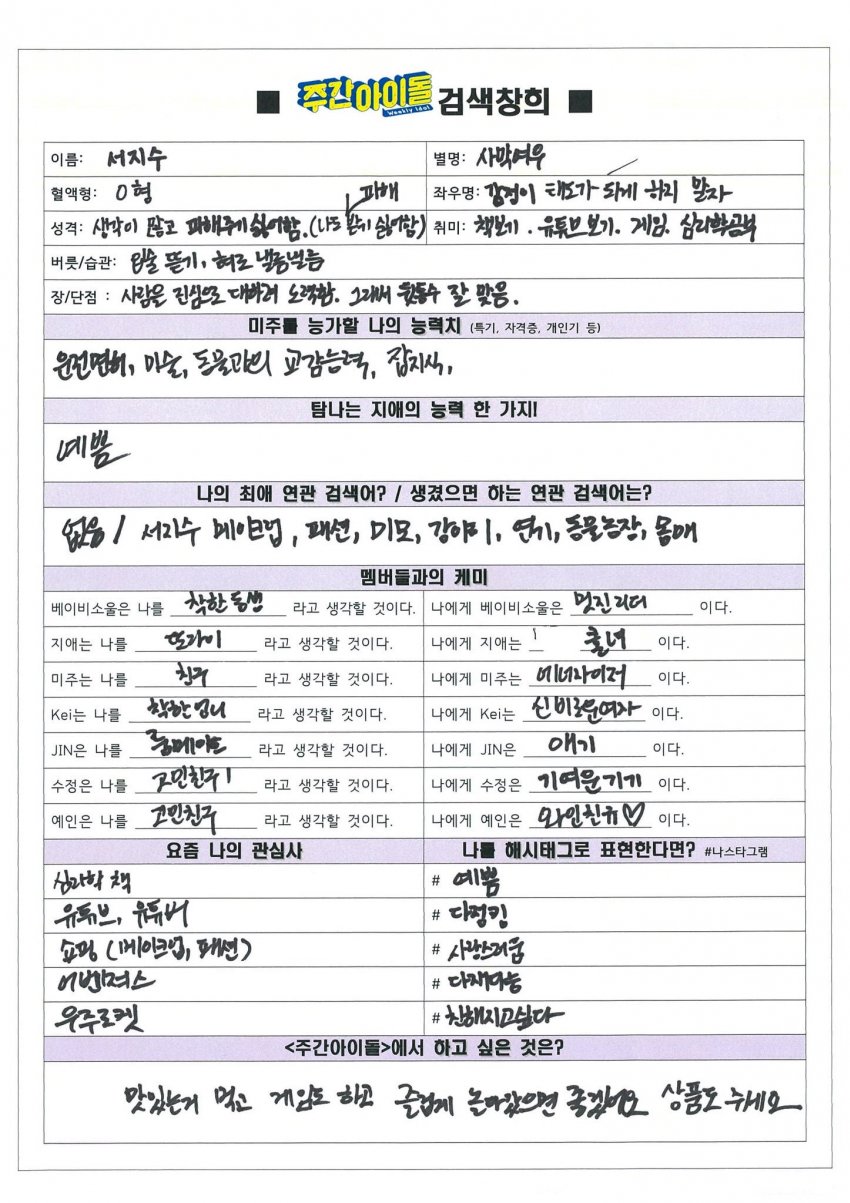 ■ 주간아이돌 Weekly Idol 검색창희 ■
이름: 서지수 별명: 사막여우
혈액형: O형 좌우명: 감정이 태도가 되게 하지 말자
성격: 생각이 많고 피해주기 싫어함.(나도 피해 받기 싫어함) 취미: 책보기. 유튜브보기. 게임. 심리학공부
버릇/습관: 입술 뜯기, 혀로 낼름낼름
장/단점 : 사람을 진심으로 대하려 노력함. 그래서 뒷통수 잘 맞음.
미주를 능가할 나의 능력치 (특기, 자격증, 개인기 등)
운전면허, 미술, 동물과의 교감능력, 잡지식,
탐나는 지애의 능력 한 가지!
예쁨
나의 최애 연관 검색어? / 생겼으면 하는 연관 검색어는?
없음 / 서지수 메이크업, 패션, 미모, 강아지, 연기, 동물농장, 몸매
멤버들과의 케미
베이비소울은 나를 착한동생 라고 생각할 것이다. 나에게 베이비소울은 멋진리더 이다.
지애는 나를 또라이 라고 생각할 것이다. 나에게 지애는 쿨녀 이다.
미주는 나를 친구 라고 생각할 것이다. 나에게 미주는 에너자이저 이다.
Kei는 나를 착한언니 라고 생각할 것이다. 나에게 Kei는 신비로운여자 이다.
JIN은 나를 룸메이트 라고 생각할 것이다. 나에게 JIN은 애기 이다.
수정은 나를 고민친구1 라고 생각할 것이다. 나에게 수정은 기여운기기 이다.
예인은 나를 고민친구 라고 생각할 것이다. 나에게 예인은 와인친규♡ 이다.
요즘 나의 관심사 나를 해시태그로 표현한다면? #나스타그램
심리학 책 # 예쁨
유튜브, 유튜버 # 다정킹
쇼핑 (메이크업, 패션) # 사랑스러움
어벤져스 # 다재다능
우주로켓 # 친해지고싶다
<주간아이돌>에서 하고 싶은 것은?
맛있는거 먹고 게임도 하고 즐겁게 놀다갔으면 좋겠어요 상품도 주세요